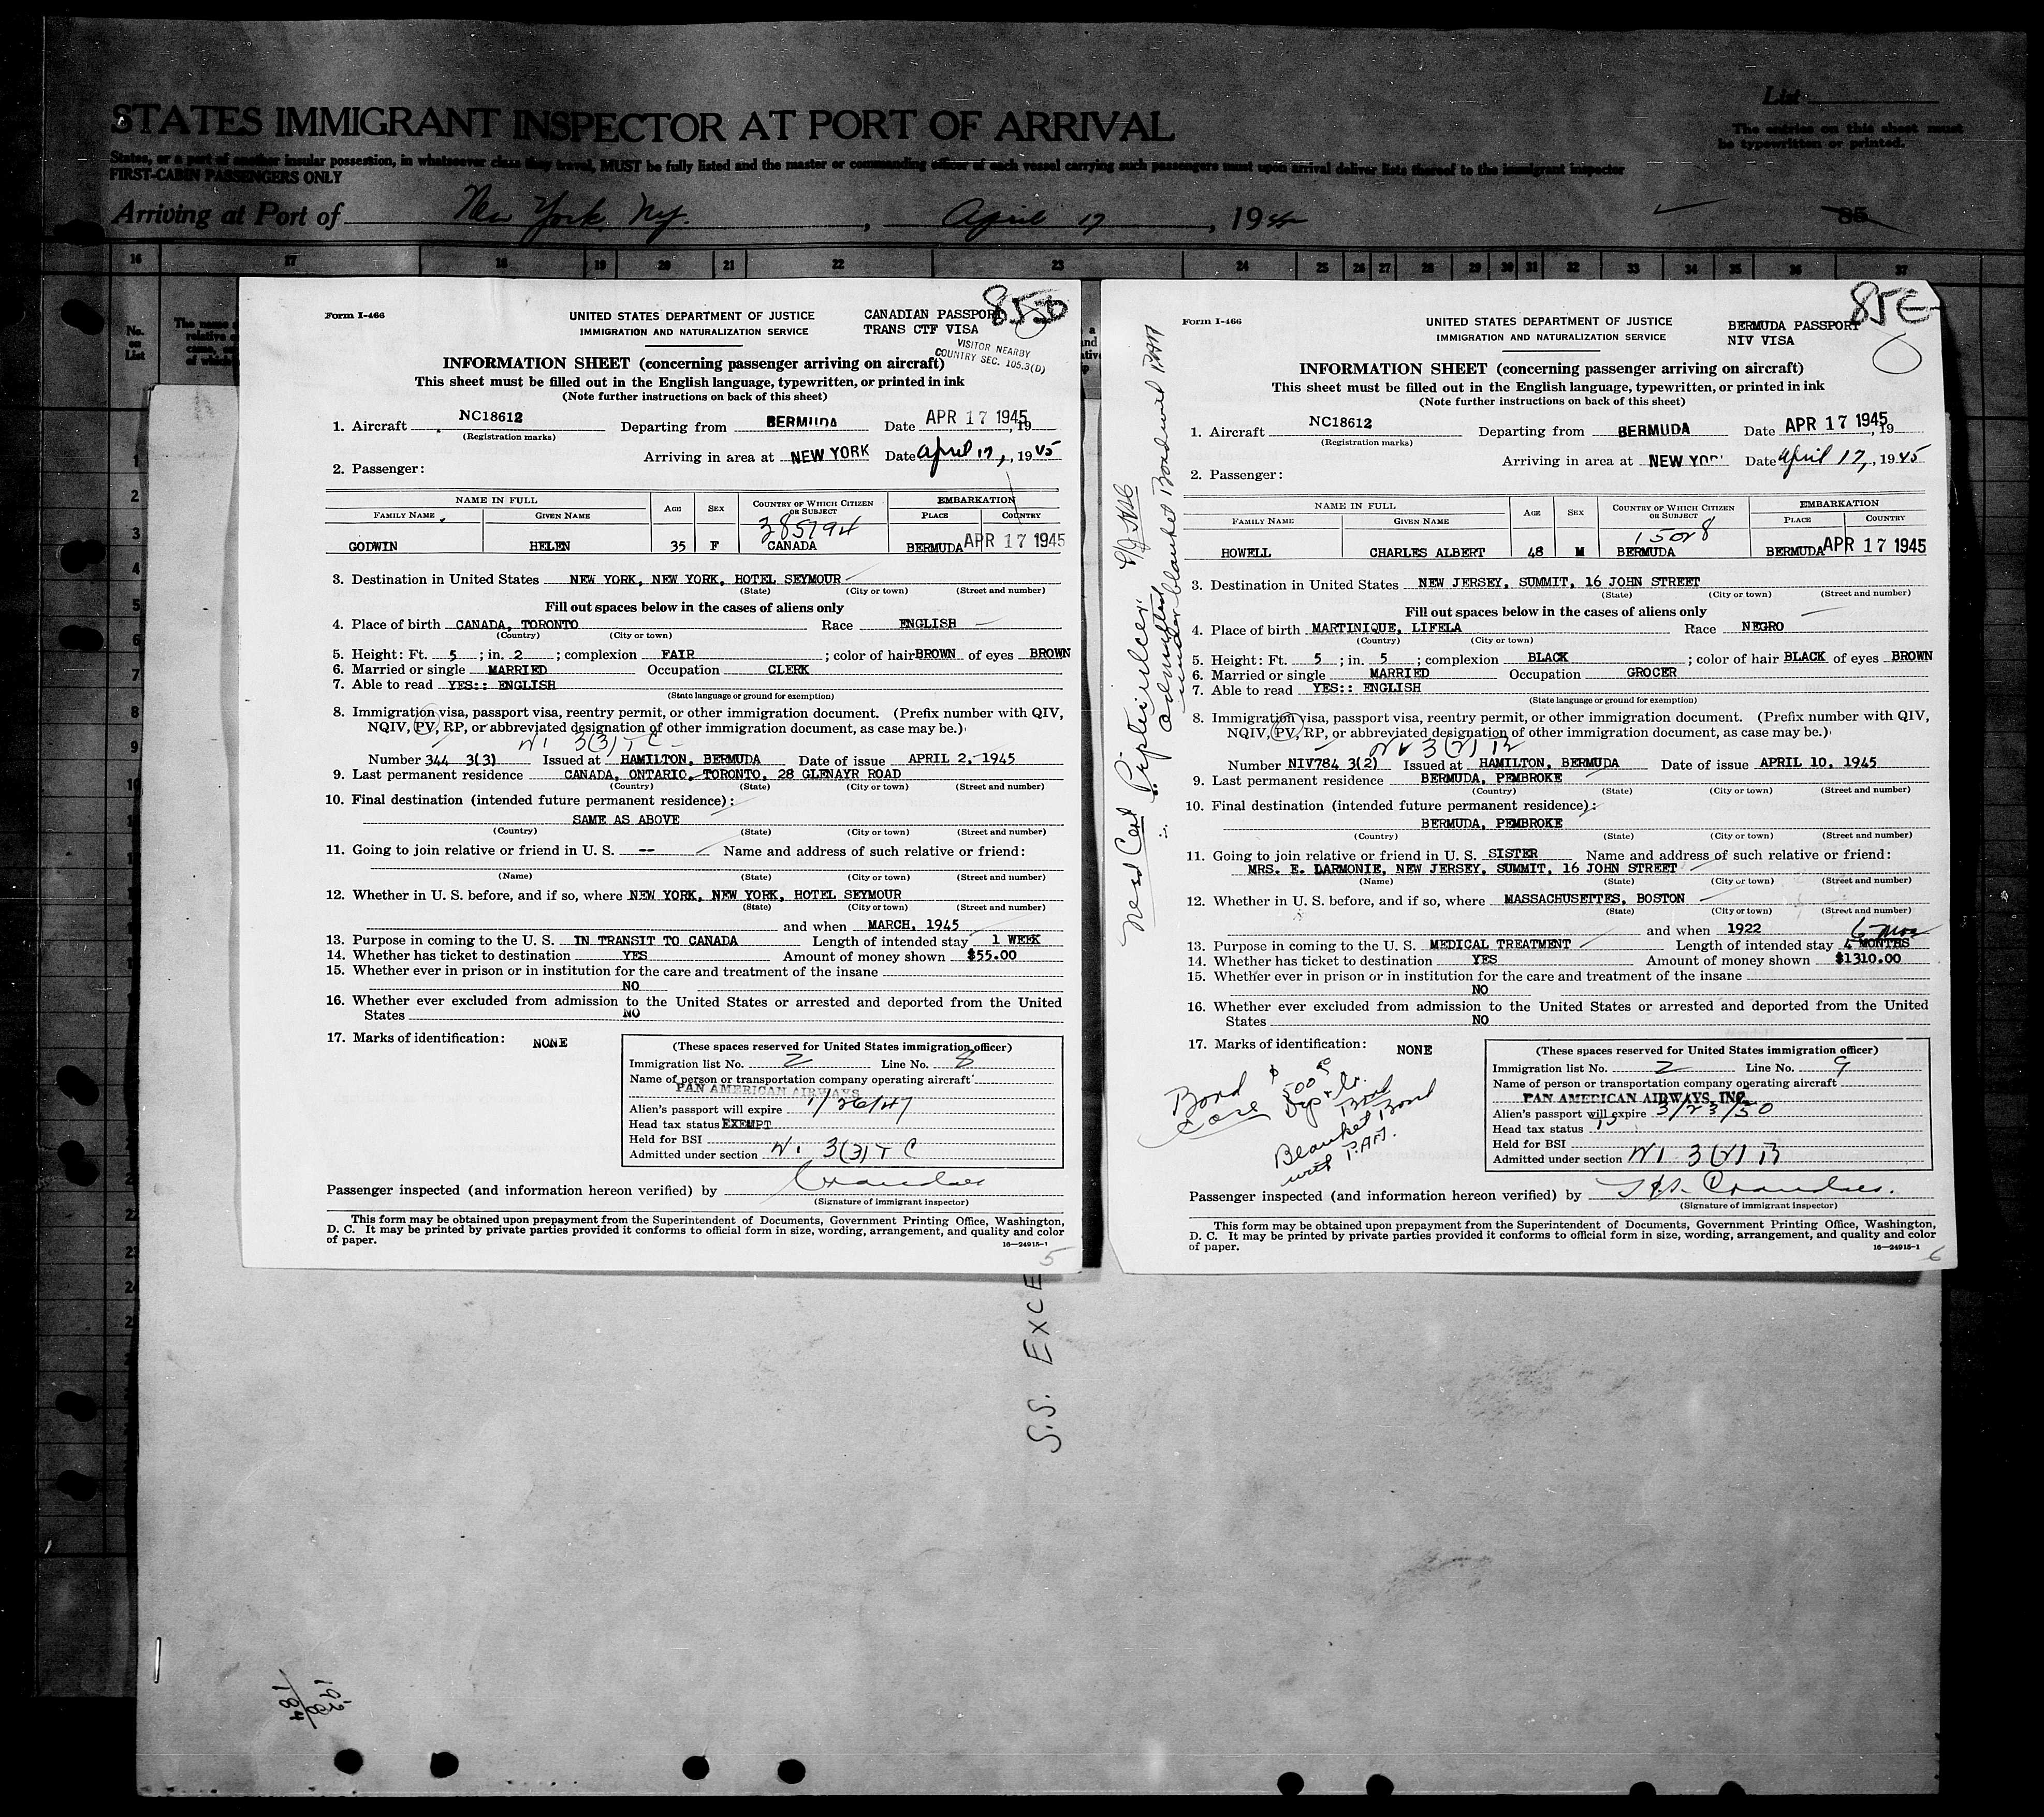 List
STATES IMMIGRANT INSPECTOR AT PORT OF ARRIVAL
The entries on this sheet must
be typewritten or printed.
States, or a part of another insular possession, in whatsoever class they travel, MUST be fully listed and the master or commanding officer of each vessel carrying such passengers must upon arrival deliver lists thereof to the immigrant inspector
FIRST-CABIN PASSENGERS ONLY
Arriving at Port of New York, Ny. , April 17 , 19
85
16 17 18 19 20 21 22 23 24 25 26 27 28 29 30 31 32 33 34 35 36 37
No.
on
List
85D
Form I-466
UNITED STATES DEPARTMENT OF JUSTICE
IMMIGRATION AND NATURALIZATION SERVICE
CANADIAN PASSPORT
TRANS CTF VISA
VISITOR NEARBY
COUNTRY SEC. 105.3(D)
INFORMATION SHEET (concerning passenger arriving on aircraft)
This sheet must be filled out in the English language, typewritten, or printed in ink
(Note further instructions on back of this sheet)
1. Aircraft NC18612 Departing from BERMUDA Date APR 17 1945, 19
(Registration marks)
Arriving in area at NEW YORK Date April 17, , 1945
2. Passenger:
NAME IN FULL AGE SEX COUNTRY OF WHICH CITIZEN OR SUBJECT EMBARKATION
FAMILY NAME GIVEN NAME PLACE COUNTRY
385794
GODWIN HELEN 35 F CANADA BERMUDA APR 17 1945
3. Destination in United States NEW YORK, NEW YORK, HOTEL SEYMOUR
(State) (City or town) (Street and number)
Fill out spaces below in the cases of aliens only
4. Place of birth CANADA, TORONTO Race ENGLISH
(Country) (City or town)
5. Height: Ft. 5 ; in. 2 ; complexion FAIR ; color of hair BROWN of eyes BROWN
6. Married or single MARRIED Occupation CLERK
7. Able to read YES:: ENGLISH
(State language or ground for exemption)
8. Immigration visa, passport visa, reentry permit, or other immigration document. (Prefix number with QIV,
NQIV, PV, RP, or abbreviated designation of other immigration document, as case may be.)
3(3) T C
Number 344 3(3) Issued at HAMILTON, BERMUDA Date of issue APRIL 2, 1945
9. Last permanent residence CANADA, ONTARIO, TORONTO, 28 GLENAYR ROAD
(Country) (State) (City or town) (Street and number)
10. Final destination (intended future permanent residence):
SAME AS ABOVE
(Country) (State) (City or town) (Street and number)
11. Going to join relative or friend in U. S. -- Name and address of such relative or friend:
(Name) (State) (City or town) (Street and number)
12. Whether in U. S. before, and if so, where NEW YORK, NEW YORK, HOTEL SEYMOUR
(State) (City or town) (Street and number)
and when MARCH, 1945
13. Purpose in coming to the U. S. IN TRANSIT TO CANADA Length of intended stay 1 WEEK
14. Whether has ticket to destination YES Amount of money shown $55.00
15. Whether ever in prison or in institution for the care and treatment of the insane
NO
16. Whether ever excluded from admission to the United States or arrested and deported from the United
States NO
17. Marks of identification: NONE
(These spaces reserved for United States immigration officer)
Immigration list No. 2 Line No. 8
Name of person or transportation company operating aircraft
PAN AMERICAN AIRWAYS
Alien's passport will expire 1/26/47
Head tax status EXEMPT
Held for BSI
Admitted under section 3(3) T C
Passenger inspected (and information hereon verified) by
(Signature of immigrant inspector)
This form may be obtained upon prepayment from the Superintendent of Documents, Government Printing Office, Washington,
D. C. It may be printed by private parties provided it conforms to official form in size, wording, arrangement, and quality and color
of paper.
16—24915-1
5
85E
Form I-466
UNITED STATES DEPARTMENT OF JUSTICE
IMMIGRATION AND NATURALIZATION SERVICE
BERMUDA PASSPORT
NIV VISA
INFORMATION SHEET (concerning passenger arriving on aircraft)
This sheet must be filled out in the English language, typewritten, or printed in ink
(Note further instructions on back of this sheet)
1. Aircraft NC18612 Departing from BERMUDA Date APR 17 1945, 19
(Registration marks)
Arriving in area at NEW YOR Date April 17, , 1945
2. Passenger:
NAME IN FULL AGE SEX COUNTRY OF WHICH CITIZEN OR SUBJECT EMBARKATION
FAMILY NAME GIVEN NAME PLACE COUNTRY
HOWELL CHARLES ALBERT 48 M BERMUDA BERMUDA APR 17 1945
3. Destination in United States NEW JERSEY, SUMMIT, 16 JOHN STREET
(State) (City or town) (Street and number)
Fill out spaces below in the cases of aliens only
4. Place of birth MARTINIQUE, LIFELA Race NEGRO
(Country) (City or town)
5. Height: Ft. 5 ; in. 5 ; complexion BLACK ; color of hair BLACK of eyes BROWN
6. Married or single MARRIED Occupation GROCER
7. Able to read YES:: ENGLISH
(State language or ground for exemption)
8. Immigration visa, passport visa, reentry permit, or other immigration document. (Prefix number with QIV,
NQIV, PV, RP, or abbreviated designation of other immigration document, as case may be.)
3(2) B
Number NIV784 3(2) Issued at HAMILTON, BERMUDA Date of issue APRIL 10, 1945
9. Last permanent residence BERMUDA, PEMBROKE
(Country) (State) (City or town) (Street and number)
10. Final destination (intended future permanent residence):
BERMUDA, PEMBROKE
(Country) (State) (City or town) (Street and number)
11. Going to join relative or friend in U. S. SISTER Name and address of such relative or friend:
MRS. E. DARMONIE, NEW JERSEY, SUMMIT, 16 JOHN STREET
(Name) (State) (City or town) (Street and number)
12. Whether in U. S. before, and if so, where MASSACHUSETTES, BOSTON
(State) (City or town) (Street and number)
and when 1922
6 mos
13. Purpose in coming to the U. S. MEDICAL TREATMENT Length of intended stay 4 MONTHS
14. Whether has ticket to destination YES Amount of money shown $1310.00
15. Whether ever in prison or in institution for the care and treatment of the insane
NO
16. Whether ever excluded from admission to the United States or arrested and deported from the United
States NO
17. Marks of identification: NONE
Bond $500
Case
Bond
Blanket Bond
with P.A.A.
(These spaces reserved for United States immigration officer)
Immigration list No. 2 Line No. 9
Name of person or transportation company operating aircraft
PAN AMERICAN AIRWAYS, INC.
Alien's passport will expire 3/23/50
Head tax status
Held for BSI
Admitted under section 3(2) B
Passenger inspected (and information hereon verified) by
(Signature of immigrant inspector)
This form may be obtained upon prepayment from the Superintendent of Documents, Government Printing Office, Washington,
D. C. It may be printed by private parties provided it conforms to official form in size, wording, arrangement, and quality and color
of paper.
16—24915-1
6
Med Cert
admitted
under blanket Bond with PAA
S.S. EXCE